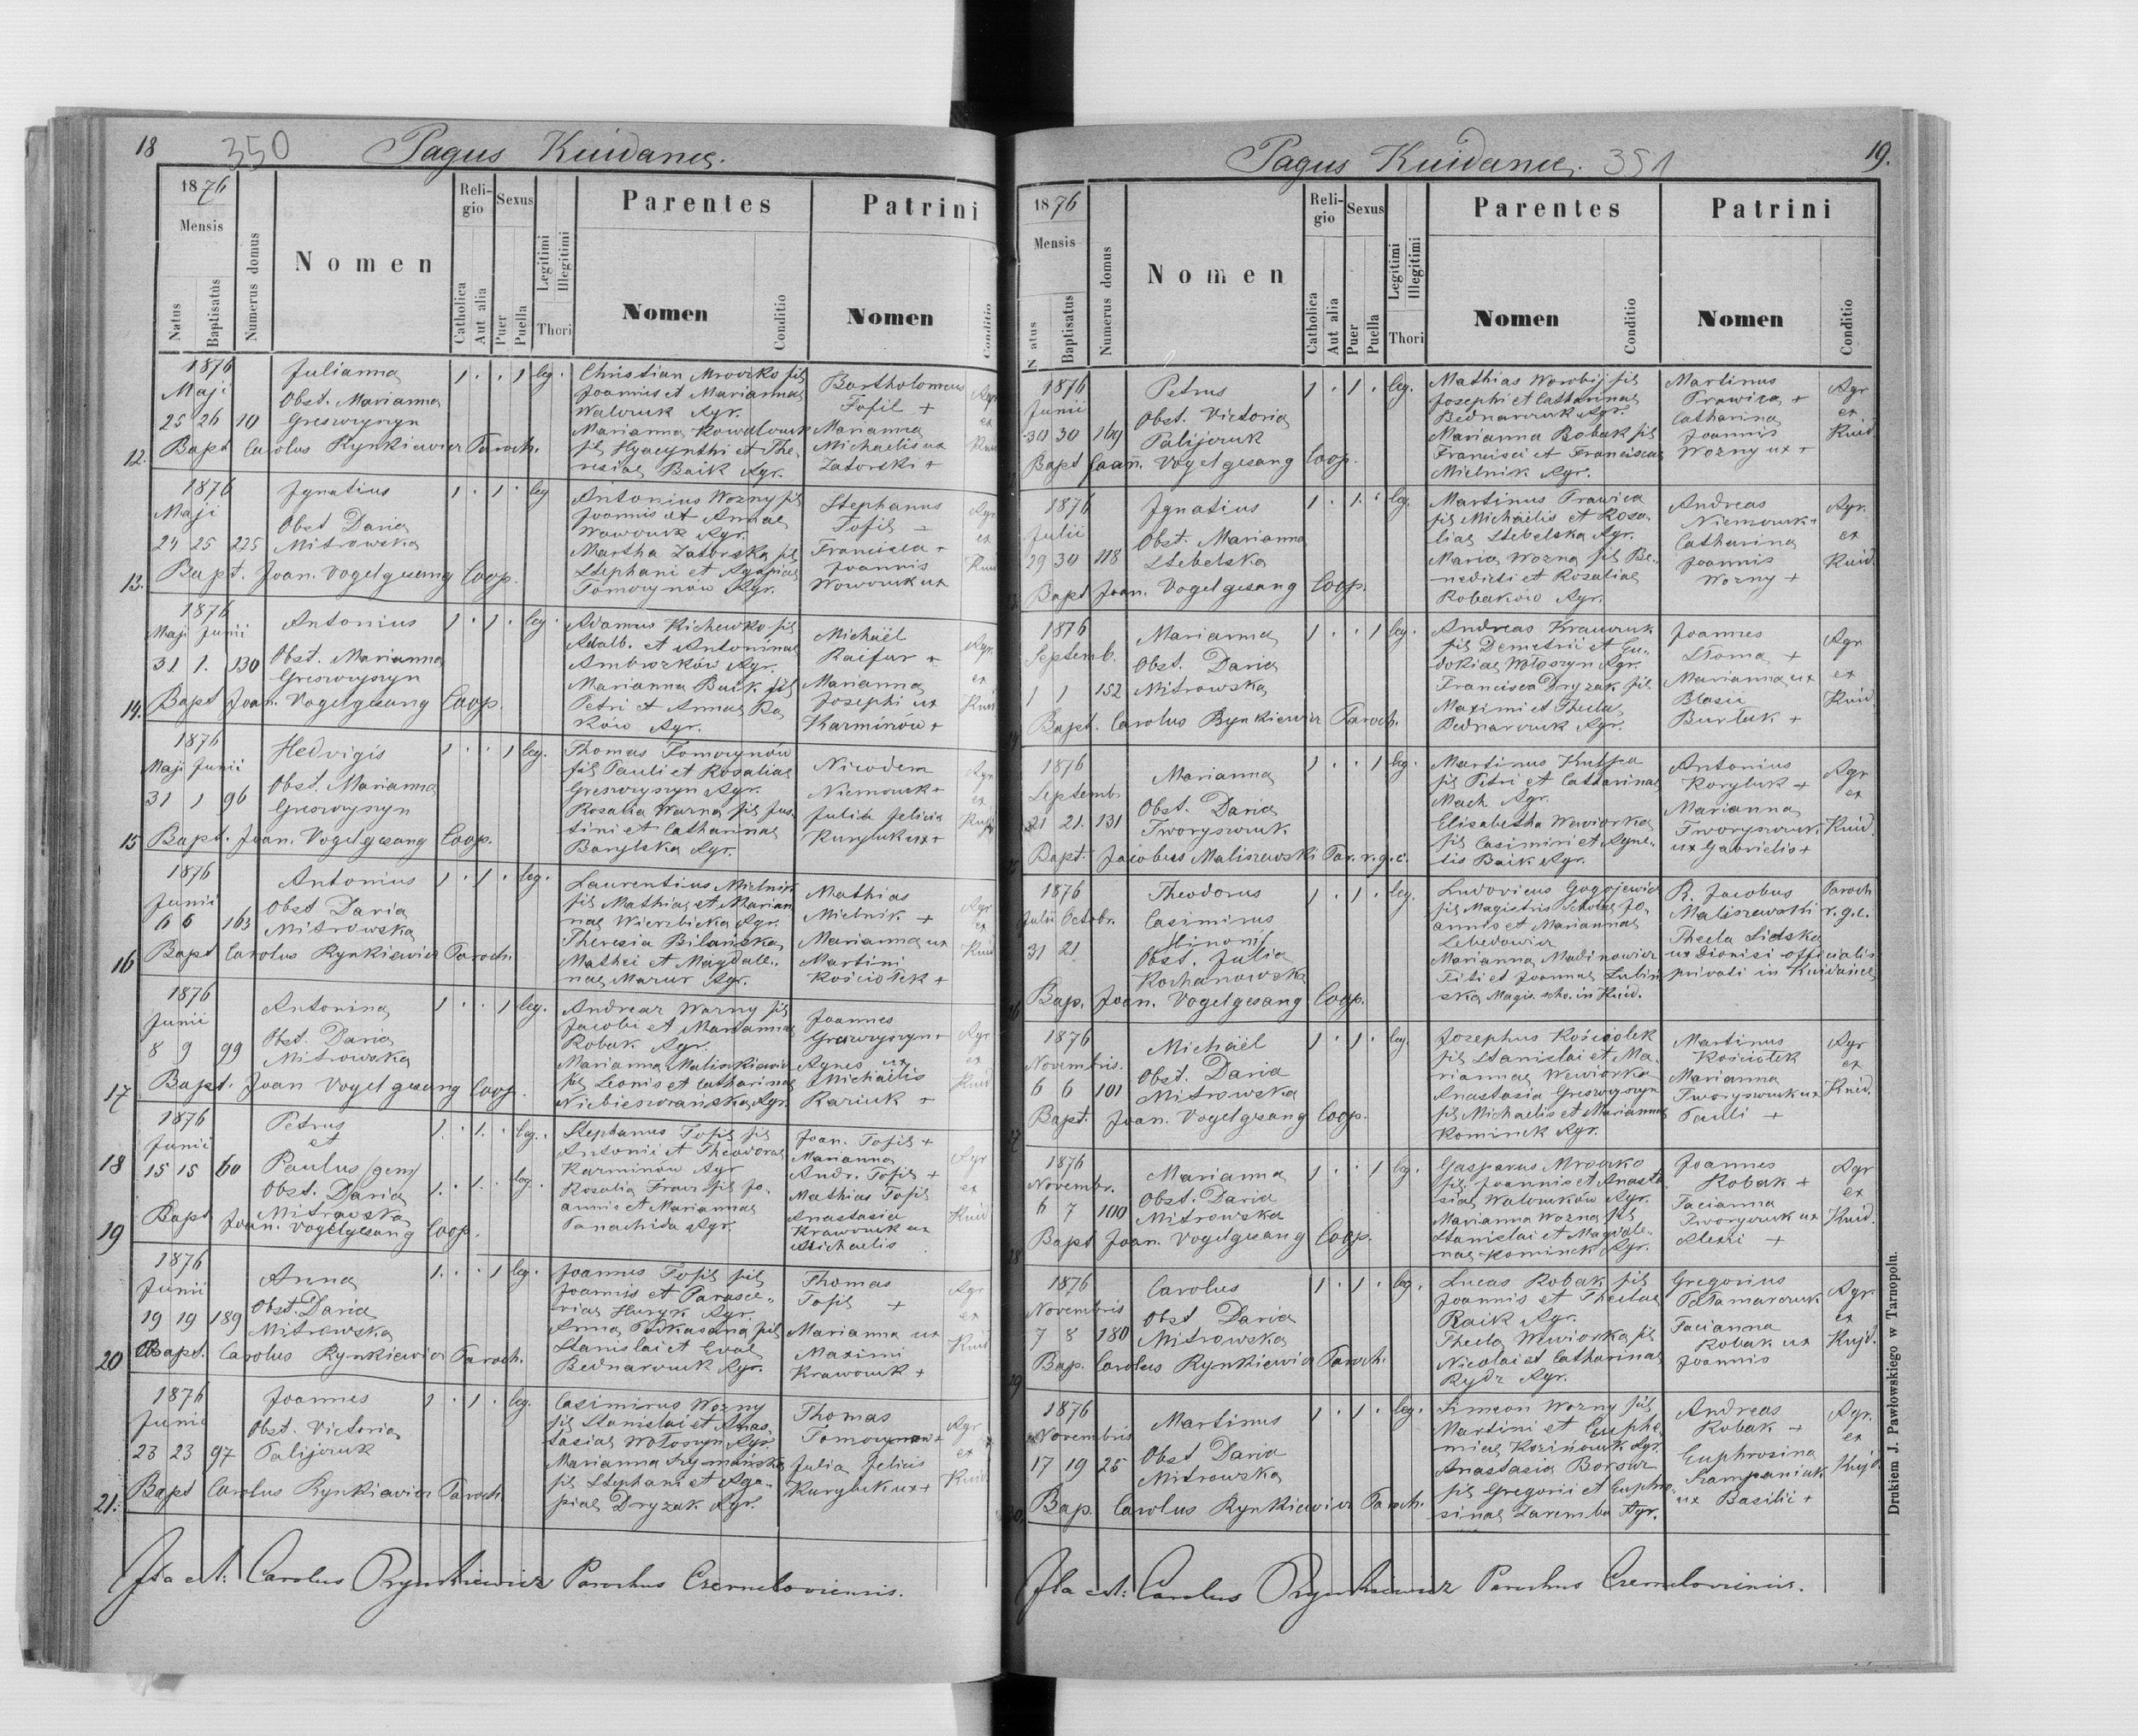 18
350
Pagus Kuidance.
1876
Mensis
Natus
Baptisatus
Numerus domus
Nomen
Religio
Catholica
Aut alia
Sexus
Puer
Puella
Legitimi
Illegitimi
Thori
Parentes
Nomen
Conditio
Patrini
Nomen
Conditio
1876
Maji
25 26 10
Julianna
Obst. Marianna
1 . . 1 leg.
Christian Mroczko fil
Joannis et Mariannae
Walczuk Agr.
Marianna Kowalczuk
fil Hyacynthi et The-
resiae Baik Agr.
Bartholomeus
Tofil +
Marianna
Michaelis ux
Zatorski +
12. Bapt Carolus Rynkiewicz Paroch.
1876
Maji
24 25 275
Ignatius
Obst Daria
Mitrowska
1 . 1 . leg
Antonius Wozny fil
Joannis et Annae
Wowczuk Agr.
Martha Zatorska fil
Stephani et Agapiae
Tomczynów Agr.
Stephanus
Tofil
Francisca +
Joannis
Wowczuk ux
13. Bapt. Joan. Vogelgesang Coop.
1876
Maji Junii
31 1. 130
Antonius
Obst. Marianna
1 . 1 . leg.
Adamus Kichewko fil
Adalb. et Antoninae
Ambrozków Agr.
Marianna Baik fil
Petri et Annae Ba
ków Agr.
Michaël
Raifur +
Marianna
Josephi ux
Karminów +
14. Bapt Joan. Vogelgesang Coop.
1876
Maji Junii
31 1 96
Hedvigis
Obst. Marianna
1 . . 1 leg.
Thomas Tomczynów
fil Pauli et Rosaliae
Rosalia Warna fil Jus-
tini et Catharinae
Barylska Agr.
Nicodem
Niemczuk +
Julia Felicis
Kuryluk ux +
15 Bapt. Joan. Vogelgesang Coop.
1876
Junii
6 6 163
Antonius
Obst Daria
Mitrowska
1 . 1 . leg.
Laurentius Mielnik
fil Mathiae et Marian
nae Wierzbicka Agr.
Theresia Bilanska
Mathei et Magdale-
nae Mazur Agr.
Mathias
Mielnik +
Marianna ux
Martini
Kościołek +
16 Bapt Carolus Rynkiewicz Paroch.
1876
Junii
8 9 99
Antonina
Obst. Daria
Mitrowska
1 . . 1 leg.
Andreas Warny fil
Jacobi et Mariannae
Robak Agr.
Marianna Malinkiewicz
fil Leonis et Catharinae
Joannes
Agnes ux
Michaëlis
17 Bapt. Joan Vogelgesang Coop.
1876
Junii
15 15 60
Petrus
et
Paulus /gem/
Obst. Daria
Mitrowska
1. . 1. . leg.
1. . 1. . leg.
Stephanus Tofil fil
Antonii et Theodorae
Karminów Agr
Rosalia Fraus fil Jo-
annis et Mariannae
Panachida Agr.
Joan. Tofil +
Marianna
Andr. Tofil +
Mathias Tofil
Anastasia
Krawczuk ux
Michaelis
18
19 Bapt Joan. Vogelgesang Coop.
1876
Junii
19 19 189
Anna
Obst. Daria
Mitrowska
1. . . 1 leg.
Joannes Tofil fil
Joannis et Parasce-
viae Huryk Agr.
Stanislai et Evae
Bednarczuk Agr.
Thomas
Tofil +
Marianna ux
Maximi
Krawczuk +
20 Bapt. Carolus Rynkiewicz Paroch.
1876
Junii
23 23 97
Joannes
Obst. Victoria
Palijczuk
1 . 1 . leg.
Casimirus Wozny
fil Stanislai et Anas-
tasiae Wołoszyn Agr.
Marianna Szymańska
fil Stephani et Aga-
piae Dryzak Agr.
Thomas
Tomczynow +
Julia Felicis
Kuryluk ux +
21. Bapt Carolus Rynkiewicz Paroch
Ita est: Carolus Rynkiewicz Parochus Czerneloviensis.
19.
Pagus Kuidance. 351
1876
Mensis
Natus
Baptisatus
Numerus domus
Nomen
Religio
Catholica
Aut alia
Sexus
Puer
Puella
Legitimi
Illegitimi
Thori
Parentes
Nomen
Conditio
Patrini
Nomen
Conditio
1876
Junii
30 30 169
Petrus
Obst. Victoria
Palijczuk
1 . 1 . leg.
Mathias Worobij fil
Josephi et Catharinae
Bednarczuk Agr.
Marianna Robak fil
Francisci et Franciscae
Mielnik Agr.
Martinus
Prawica +
Catharina
Joannis
Wozny ux +
Agr
ex
Kuid
Bapt Joan. Vogelgesang Coop.
1876
Julii
29 30 118
Ignatius
Obst. Marianna
Stebelska
1 . 1. . leg.
Martinus Prawica
fil Michaëlis et Rosa-
liae Stebelska Agr.
Maria Wozna fil Be-
nedicti et Rosaliae
Robaków Agr.
Andreas
Niemczuk +
Catharina
Joannis
Wozny +
Agr.
ex
Kuid.
Bapt Joan. Vogelgesang Coop.
1876
Septemb.
1 1 152
Marianna
Obst. Daria
Mitrowska
1 . . 1 leg.
Andreas Krawczuk
fil Demetrii et Eu-
dokiae Wołoszyn Agr.
Francisca Dryzak fil
Maximi et Thecla
Bednarczuk Agr.
Joannes
Słoma +
Marianna ux
Blasii
Burtak +
Agr
ex
Kuid
Bapt. Carolus Rynkiewicz Paroch.
1876
Septemb
21 21. 131
Marianna
Obst. Daria
Tworyszczuk
1 . . 1 leg.
Martinus Kulpa
fil Petri et Catharinae
Mach Agr.
Elisabetha Wewiorka
fil Casimiri et Agne-
tis Baik Agr.
Antonius
Koryluk +
Marianna
Tworyszczuk
ux Gabrielis +
Agr
ex
Kuid.
Bapt. Jacobus Maliszewski Par. r. g. c.
1876
Julii Octobr.
31 21
Theodorus
Casimirus
Obst. Julia
Kochanowska
1 . 1 . leg.
Ludovicus Gogojewicz
fil Magistri Scholae Jo-
annis et Mariannae
Lebedowicz
Titi et Joannae Lulin
ska Magis. scho. in Kuid.
R. Jacobus
Maliszewski
Thecla Lidska
ux Dionisi officialis
privati in Kuidance
Paroch
r.g.c.
Bap. Joan. Vogelgesang Coop.
1876
Novembris.
6 6 101
Michaël
Obst. Daria
Mitrowska
1 . 1 . leg.
Josephus Kościolek
fil Stanislai et Ma-
riannae Wewiorka
Anastasia
fil Michaelis et Mariannae
Kominek Agr.
Martinus
Kościołek
Marianna
Tworyszczuk ux
Pauli +
Agr
ex
Kuid.
Bapt. Joan. Vogelgesang Coop.
1876
Novembr.
6 7 100
Marianna
Obst. Daria
Mitrowska
1 . . 1 leg.
Gasparus Mroczko
fil Joannis et Anasta
siae Walczuków Agr.
Marianna Wozna fil
Stanislai et Magdale-
nae Kominek Agr.
Joannes
Robak +
Tacianna
Alexii +
Agr
ex
Kuid.
Bapt Joan. Vogelgesang Coop.
1876
Novembris
7 8 180
Carolus
Obst Daria
Mitrowska
1 . 1 . leg.
Lucas Robak fil
Joannis et Theclae
Baik Agr.
Thecla Wewiorka fil
Nicolai et Catharinae
Rydz Agr.
Gregorius
Pałamarczuk
Tacianna
Robak ux
Joannis
Agr.
ex
Kujd.
Bap. Carolus Rynkiewicz Paroch.
1876
Novembris
17 19 25
Martinus
Obst Daria
Mitrowska
1 . 1 . leg.
Simeon Wozny fil
Martini et Euphe
miae Kozińczuk Agr.
Anastasia Borsuk
fil Gregorii et Euphro-
sinae Zaremba Agr.
Andreas
Robak +
Euphrosina
Szampaniuk
ux Basilii +
Agr.
ex
Kujd
Bap. Carolus Rynkiewicz Paroch.
Ita est: Carolus Rynkiewicz Parochus Czerneloviensis.
Drukiem J. Pawłowskiego w Tarnopolu.